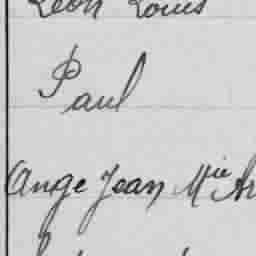 Léon Louis
Paul
Ange Jean Mie